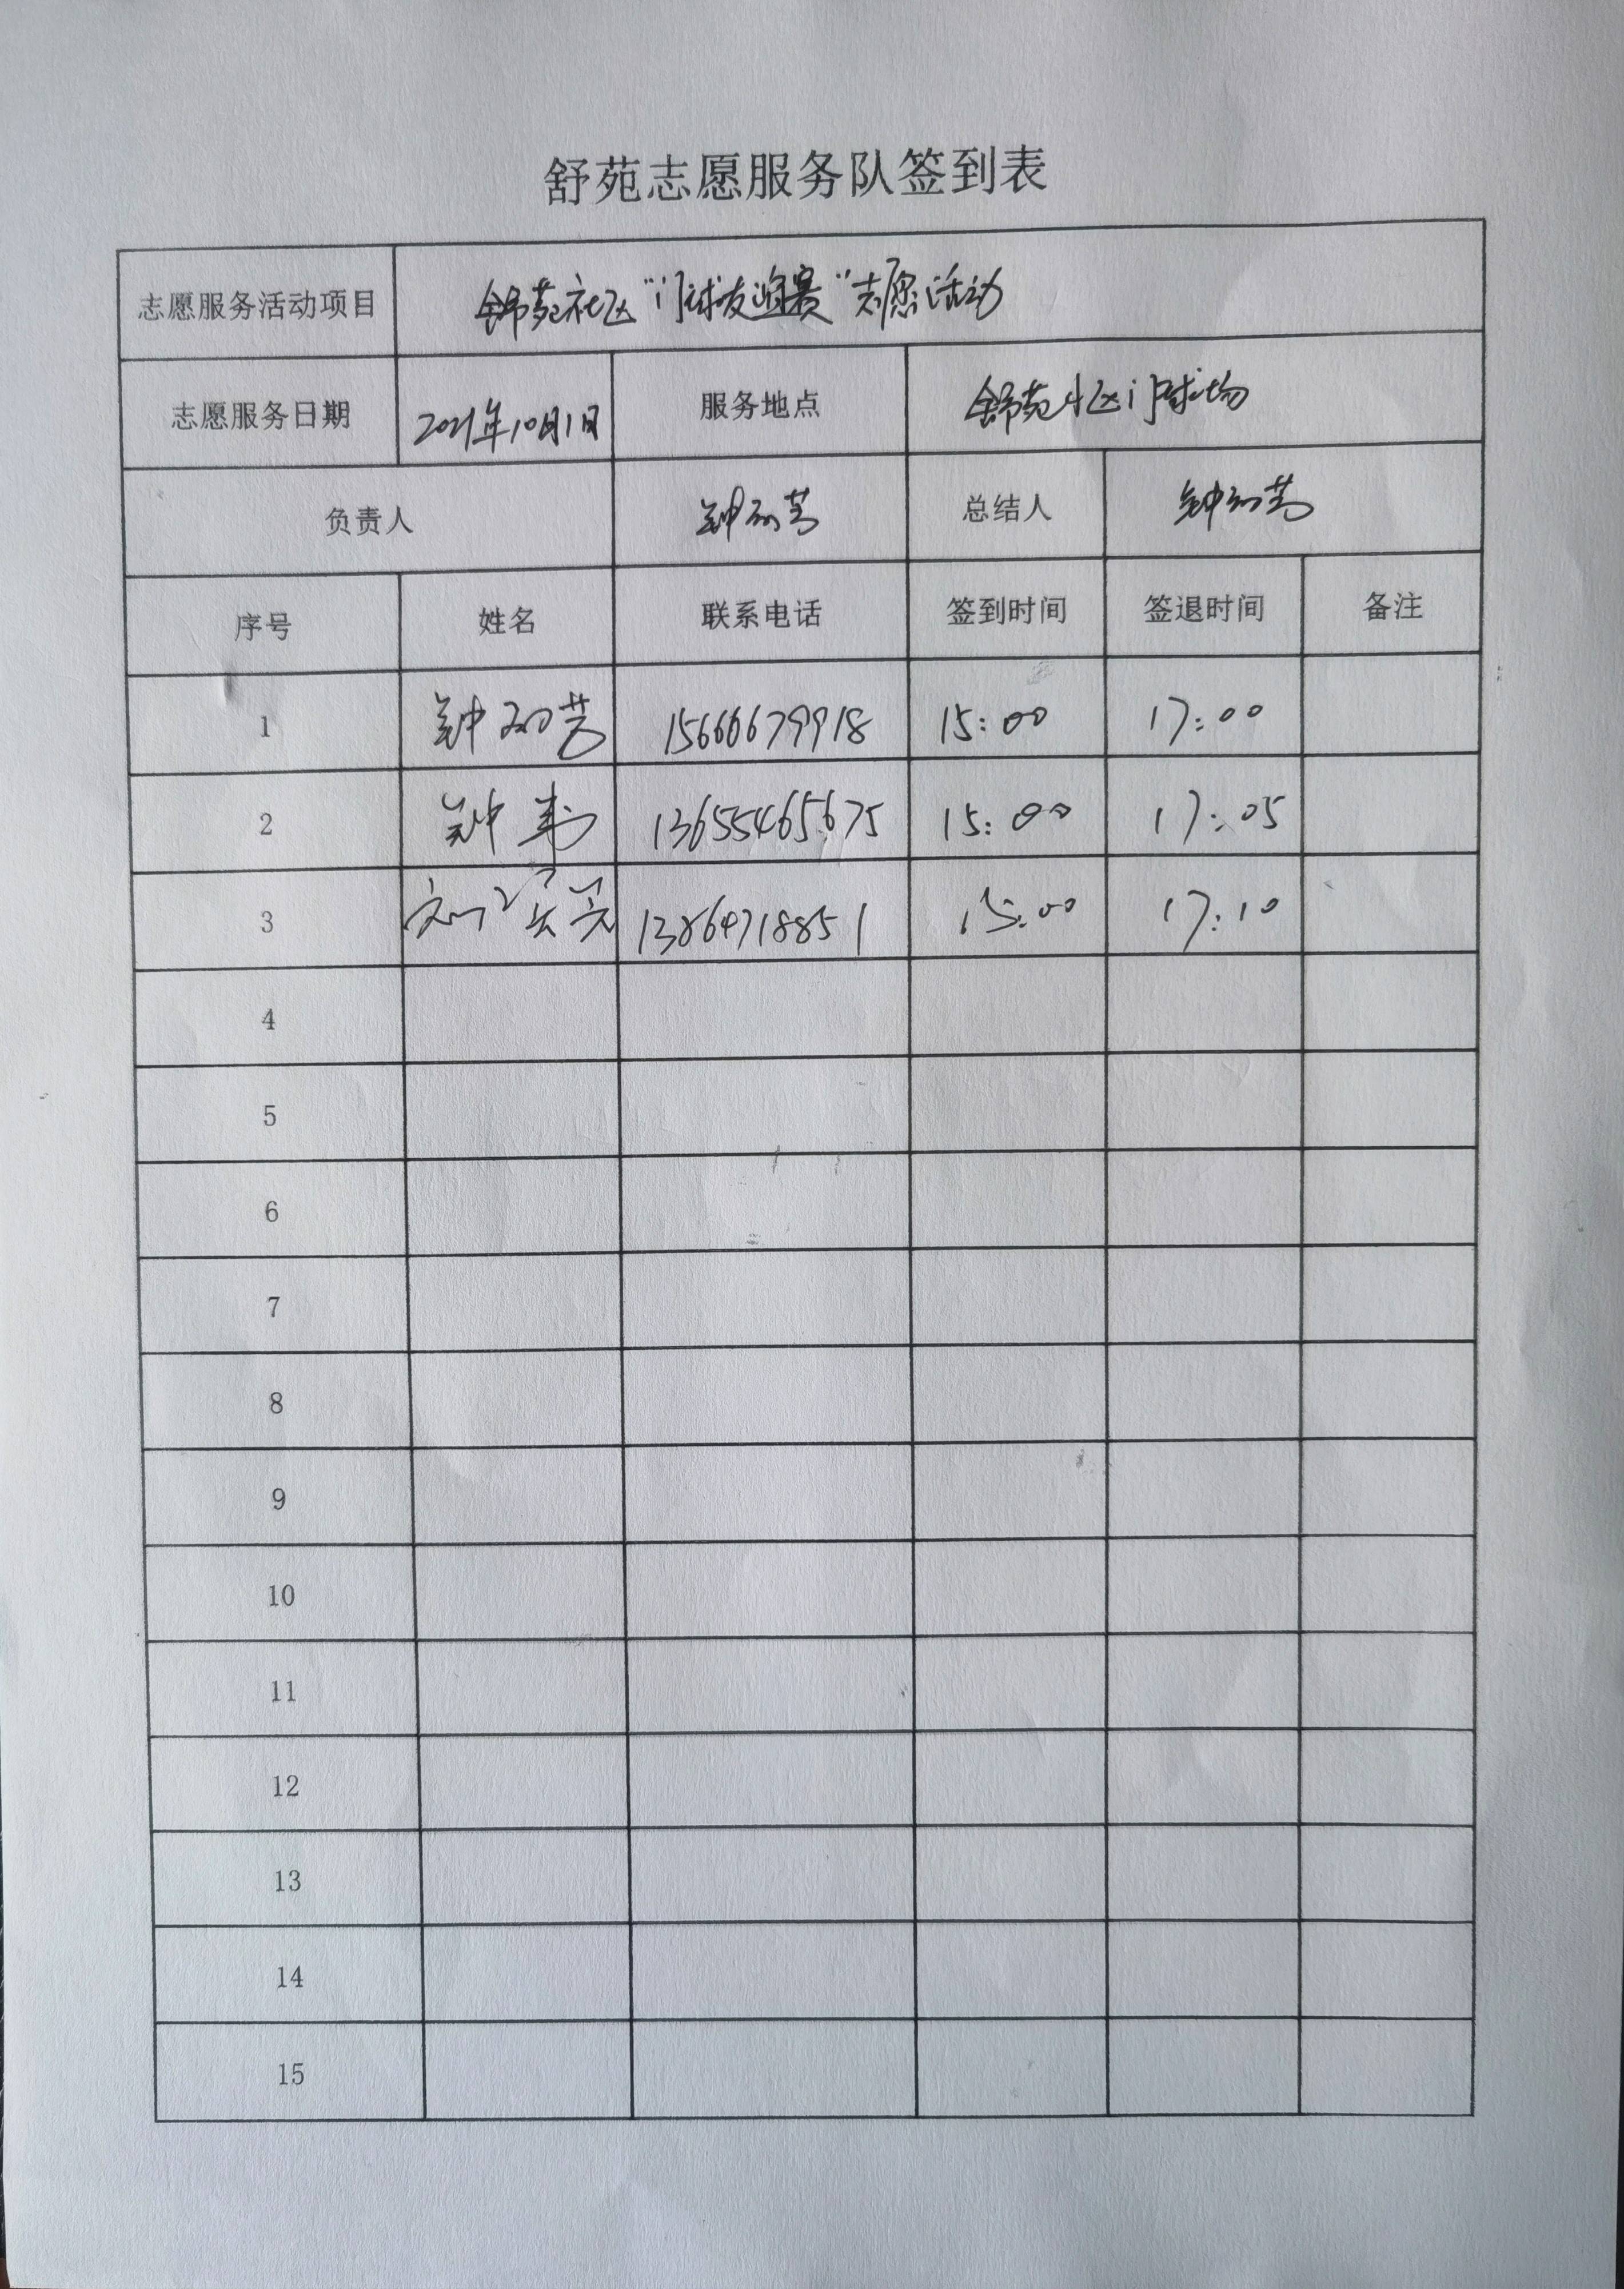 舒苑志愿服务队签到表
志愿服务活动项目 舒苑社区“门球友谊赛”志愿活动
志愿服务日期 2021年10月1日 服务地点 舒苑小区门球场
负责人 钟 芳 总结人 钟 芳
序号 姓名 联系电话 签到时间 签退时间 备注
1 钟 芳 15666679918 15:00 17:00
2 钟 13655465675 15:00 17:05
3 刘 13864718851 15:00 17:10
4
5
6
7
8
9
10
11
12
13
14
15